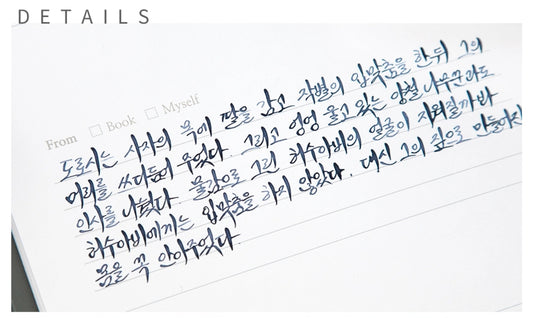 DETAILS
From □ Book □ Myself
도로시는 사자의 목에 팔을 감고 작별의 입맞춤을 한 뒤 그의
머리를 쓰다듬어 주었다. 그리고 엉엉 울고 있는 양철 나무꾼과도
인사를 나눴다. 물감으로 그린 허수아비의 얼굴이 지워질까봐
허수아비에게는 입맞춤을 하지 않았다. 대신 그의 짚으로 만들어진
몸을 꼭 안아주었다.